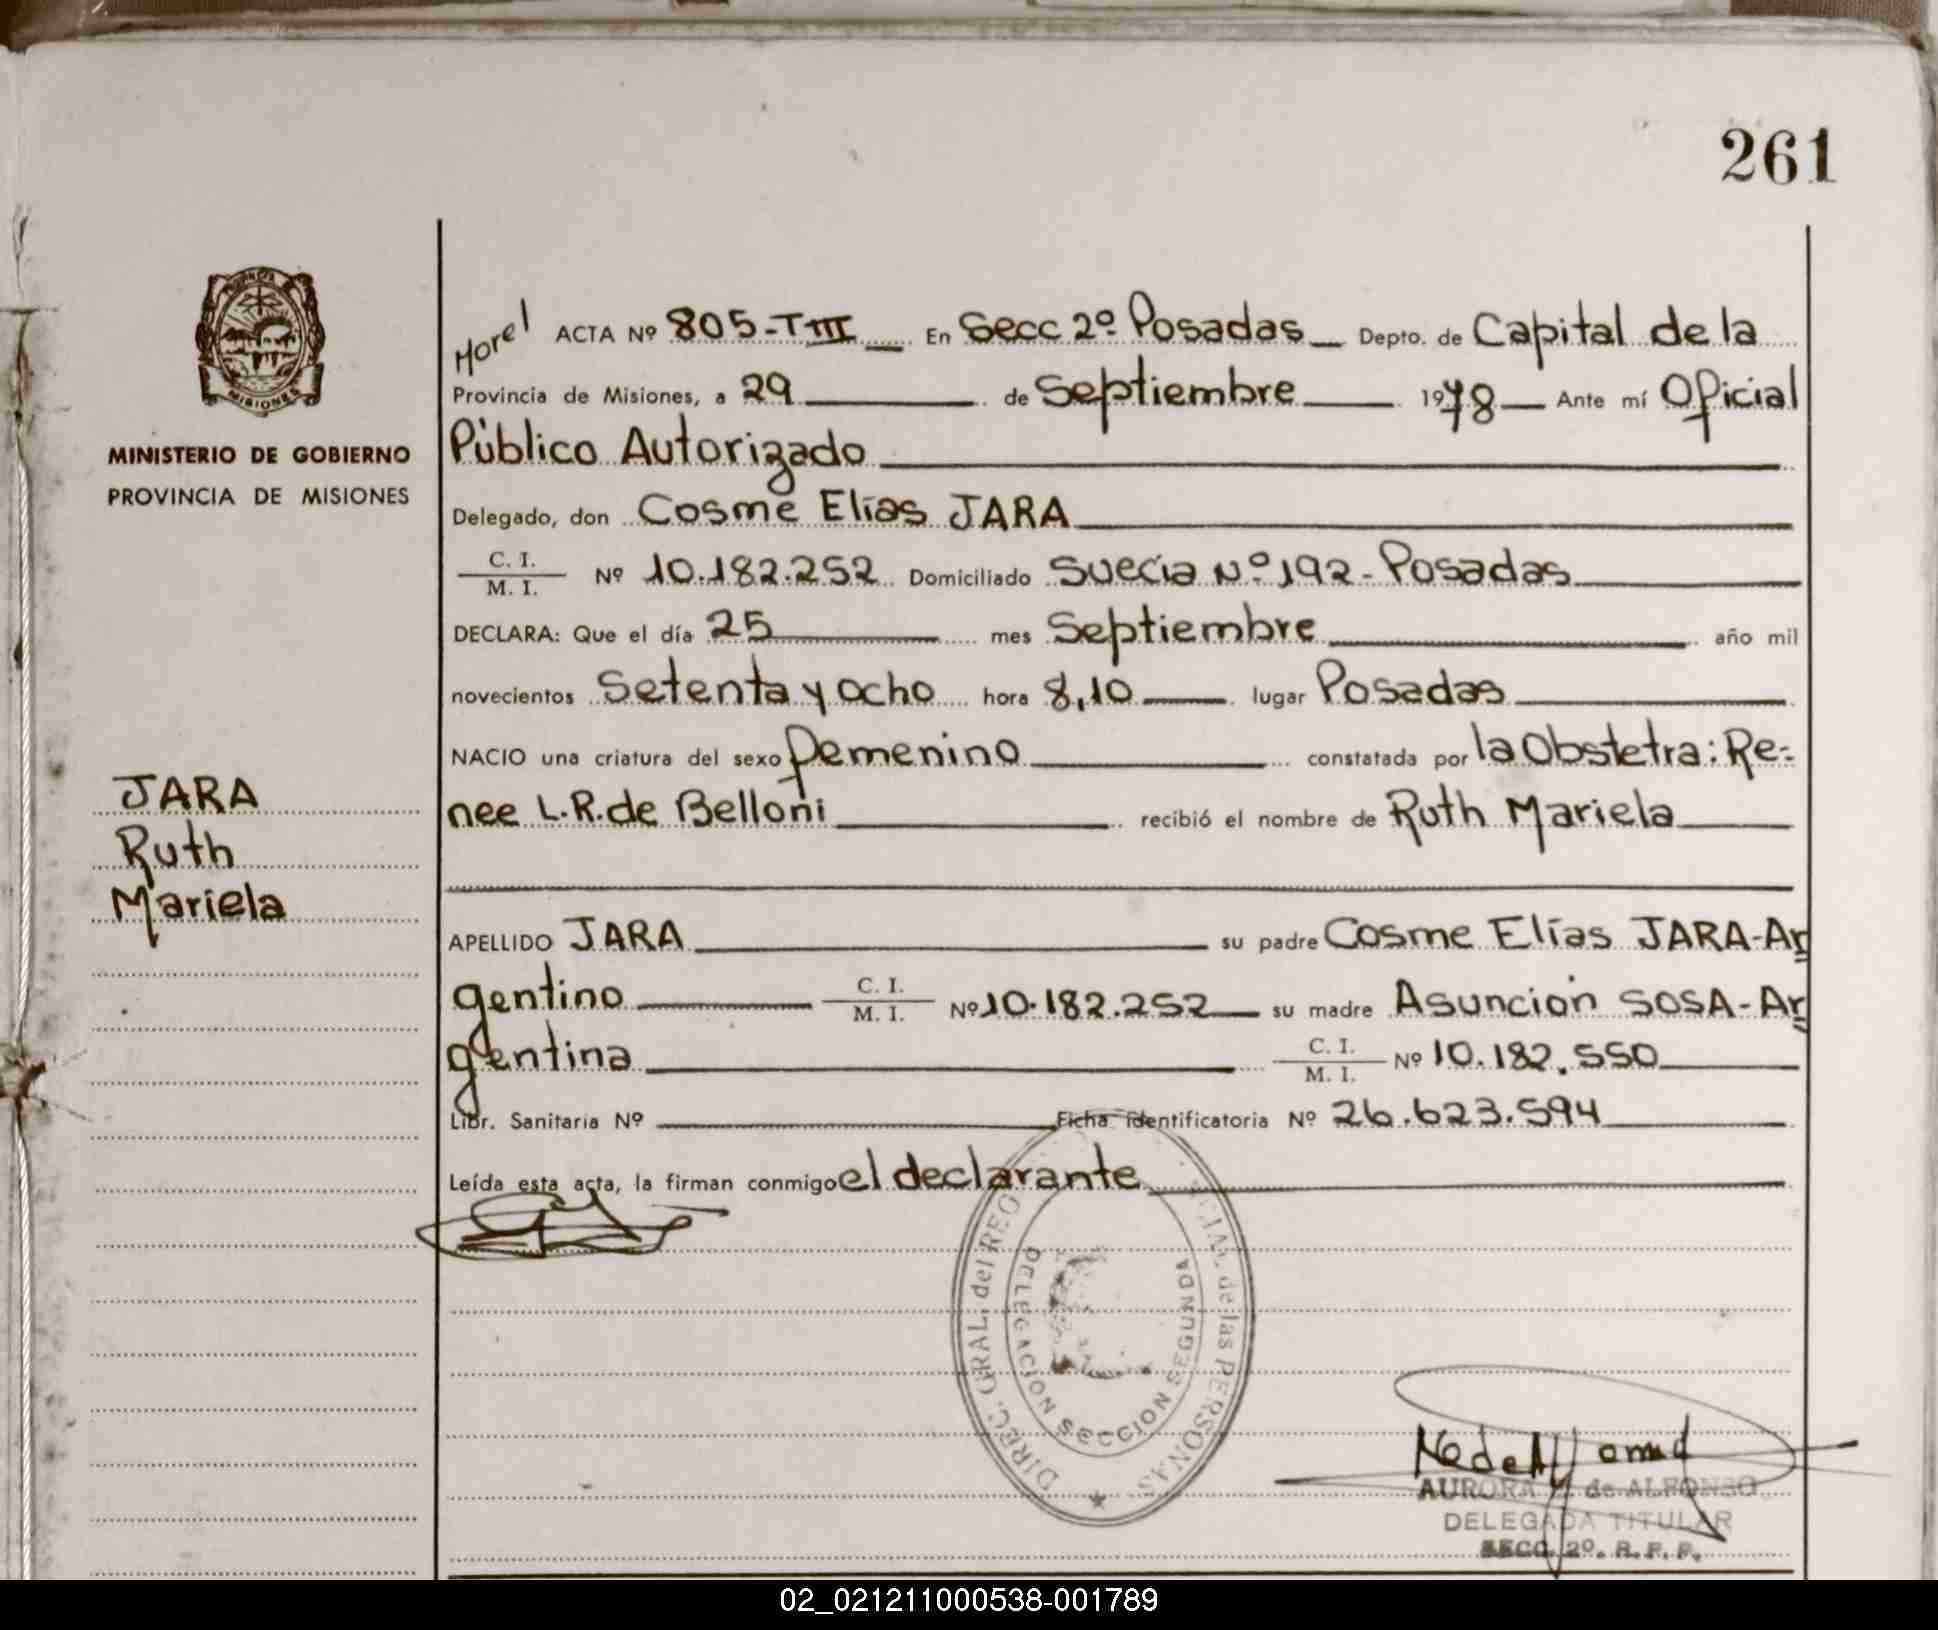 261
MISIONES
MINISTERIO DE GOBIERNO
PROVINCIA DE MISIONES
JARA
Ruth
Mariela
Morel ACTA Nº 805-TIII En Secc 2º Posadas Depto. de Capital de la
Provincia de Misiones, a 29 de Septiembre 1978 Ante mí Oficial
Público Autorizado
Delegado, don Cosme Elías JARA
C. I.
M. I. Nº 10.182.252 Domiciliado Suecia Nº 192 - Posadas
DECLARA: Que el día 25 mes Septiembre año mil
novecientos Setenta y ocho hora 8,10 lugar Posadas
NACIO una criatura del sexo femenino constatada por la Obstetra: Re-
nee L.R. de Belloni recibió el nombre de Ruth Mariela
APELLIDO JARA su padre Cosme Elías JARA-Ar
gentino C. I. M. I. Nº 10.182.252 su madre Asunción SOSA-Ar
gentina C. I. M. I. Nº 10.182.550
Libr. Sanitaria Nº Ficha Identificatoria Nº 26.623.594
Leída esta acta, la firman conmigo el declarante
DIREC. GRAL. del REG de las PERSONAS
DELEGACION SECCION SEGUNDA
AURORA de ALFONSO
DELEGADA TITULAR
SECC. 2º. R. P. P.
02_021211000538-001789